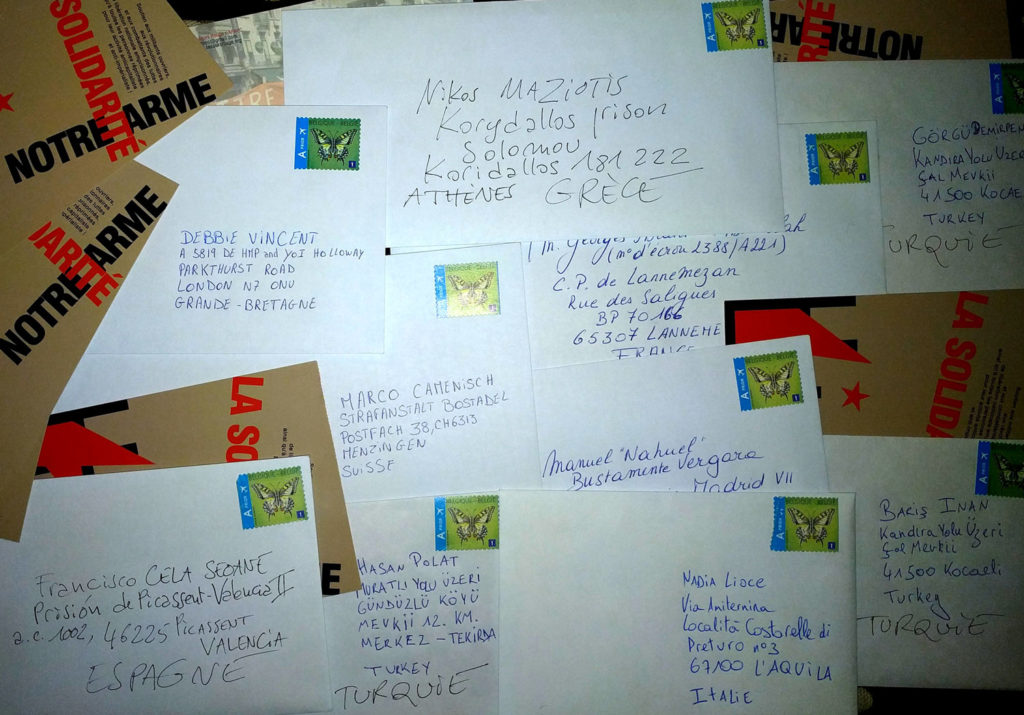 SOLIDARITÉ
NOTRE ARME
NOTRE
A PRIOR
Nikos MAZIOTIS
Korydallos Prison
Solomou
Koridallos 181 222
ATHÈNES GRÈCE
A PRIOR
BELGIE
1
DEBBIE VINCENT
A 5819 DE HMP and YOI HOLLOWAY
PARKTHURST ROAD
LONDON N7 0NU
GRANDE-BRETAGNE
A PRIOR
GÖRGÜ DEMIRPEN
KANDIRA YOLU ÜZER
ŞAL MEVKII
41500 KOCAE
TURKEY
TURQUIE
(M. Georges
(n° d'écrou 2388/A221)
C.P. de Lannemezan
Rue des Saligues
BP 70166
65307 LANNEME
FRANCE
ARITÉ
NOTRE ARME
MARCO CAMENISCH
STRAFANSTALT BOSTADEL
POSTFACH 38, CH6313
MENZINGEN
SUISSE
LA SOLID
LA SO
A PRIOR
Manuel "Nahuel"
Bustamente Vergara
Madrid VII
A PRIOR
Francisco CELA SEOANE
Prisión de Picassent-Valencia II
a.c. 1002, 46225 PICASSENT
VALENCIA
ESPAGNE
A PRIOR
HASAN POLAT
MURATLI YOLU ÜZERI
GÜNDÜZLÜ KÖYÜ
MEVKII 12. KM.
MERKEZ - TEKIRDA
TURKEY
TURQUIE
A PRIOR
NADIA LIOCE
Via Amiternina
Località Costarelle di
Preturo n°3
67100 L'AQUILA
ITALIE
A PRIOR
BARIŞ INAN
Kandira Yolu Üzeri
Şal Mevkii
41500 Kocaeli
Turkey
TURQUIE